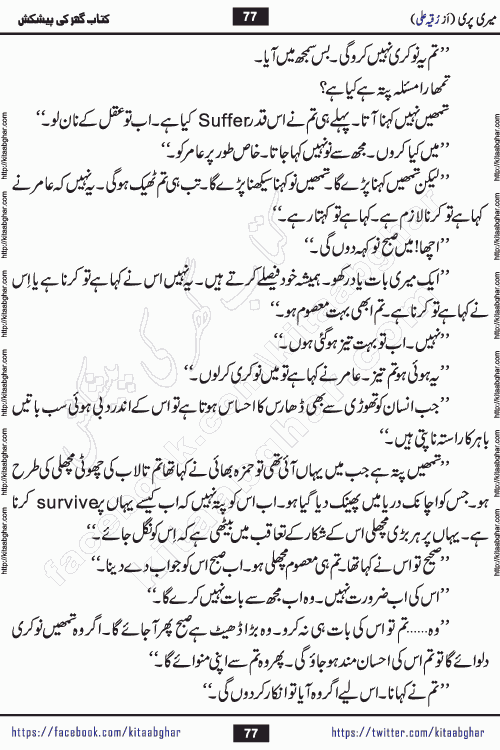 میری پری (از رُقیہ علی)
77
کتاب گھر کی پیشکش
’’تم یہ نوکری نہیں کرو گی۔ بس سمجھ میں آیا۔
تمھارا مسئلہ پتہ ہے کیا ہے؟
تمھیں نہیں کہنا آتا۔ پہلے ہی تم نے اس قدر Suffer کیا ہے۔ اب تو عقل کے نان لو۔‘‘
’’میں کیا کروں۔ مجھ سے نو نہیں کہا جاتا۔ خاص طور پر عامر کو۔‘‘
’’لیکن تمھیں کہنا پڑے گا۔ تمھیں نو کہنا سیکھنا پڑے گا۔ تب ہی تم ٹھیک ہو گی۔ یہ نہیں کہ عامر نے
کہا ہے تو کرنا لازم ہے۔ کہا ہے تو کہتا رہے۔‘‘
’’اچھا! میں صبح نو کہہ دوں گی۔‘‘
’’ایک میری بات یاد رکھو۔ ہمیشہ خود فیصلے کرتے ہیں۔ یہ نہیں اس نے کہا ہے تو کرنا ہے یا اِس
نے کہا ہے تو کرنا ہے۔ تم ابھی بہت معصوم ہو۔‘‘
’’نہیں۔ اب تو بہت تیز ہو گئی ہوں۔‘‘
’’یہ ہوئی ہو تم تیز۔ عامر نے کہا ہے تو میں نوکری کر لوں۔‘‘
’’جب انسان کو تھوڑی سے بھی ڈھارس کا احساس ہوتا ہے تو اس کے اندر دبی ہوئی سب باتیں
باہر کا راستہ ناپتی ہیں۔‘‘
’’تمھیں پتہ ہے جب میں یہاں آئی تھی تو حمزہ بھائی نے کہا تھا تم تالاب کی چھوٹی مچھلی کی طرح
ہو۔ جس کو اچانک دریا میں پھینک دیا گیا ہو۔ اب اس کو پتہ نہیں کہ اب کیسے یہاں پر survive کرنا
ہے۔ یہاں پر ہر بڑی مچھلی اس کے شکار کے تعاقب میں بیٹھی ہے کہ اِس کو نگل جائے۔‘‘
’’صحیح تو اس نے کہا تھا۔ تم ہی معصوم مچھلی ہو۔ اب صبح اس کو جواب دے دینا۔‘‘
’’اس کی اب ضرورت نہیں۔ وہ اب مجھ سے بات نہیں کرے گا۔‘‘
’’وہ……تم تو اس کی بات ہی نہ کرو۔ وہ بڑا ڈھیٹ ہے صبح پھر آ جائے گا۔ اگر وہ تمھیں نوکری
دلوائے گا تو تم اس کی احسان مند ہو جاؤ گی۔ پھر وہ تم سے اپنی منوائے گا۔‘‘
’’تم نے کہا نا۔ اس لیے اگر وہ آیا تو انکار کر دوں گی۔‘‘
https://facebook.com/kitaabghar
77
https://twitter.com/kitaabghar
http://kitaabghar.com